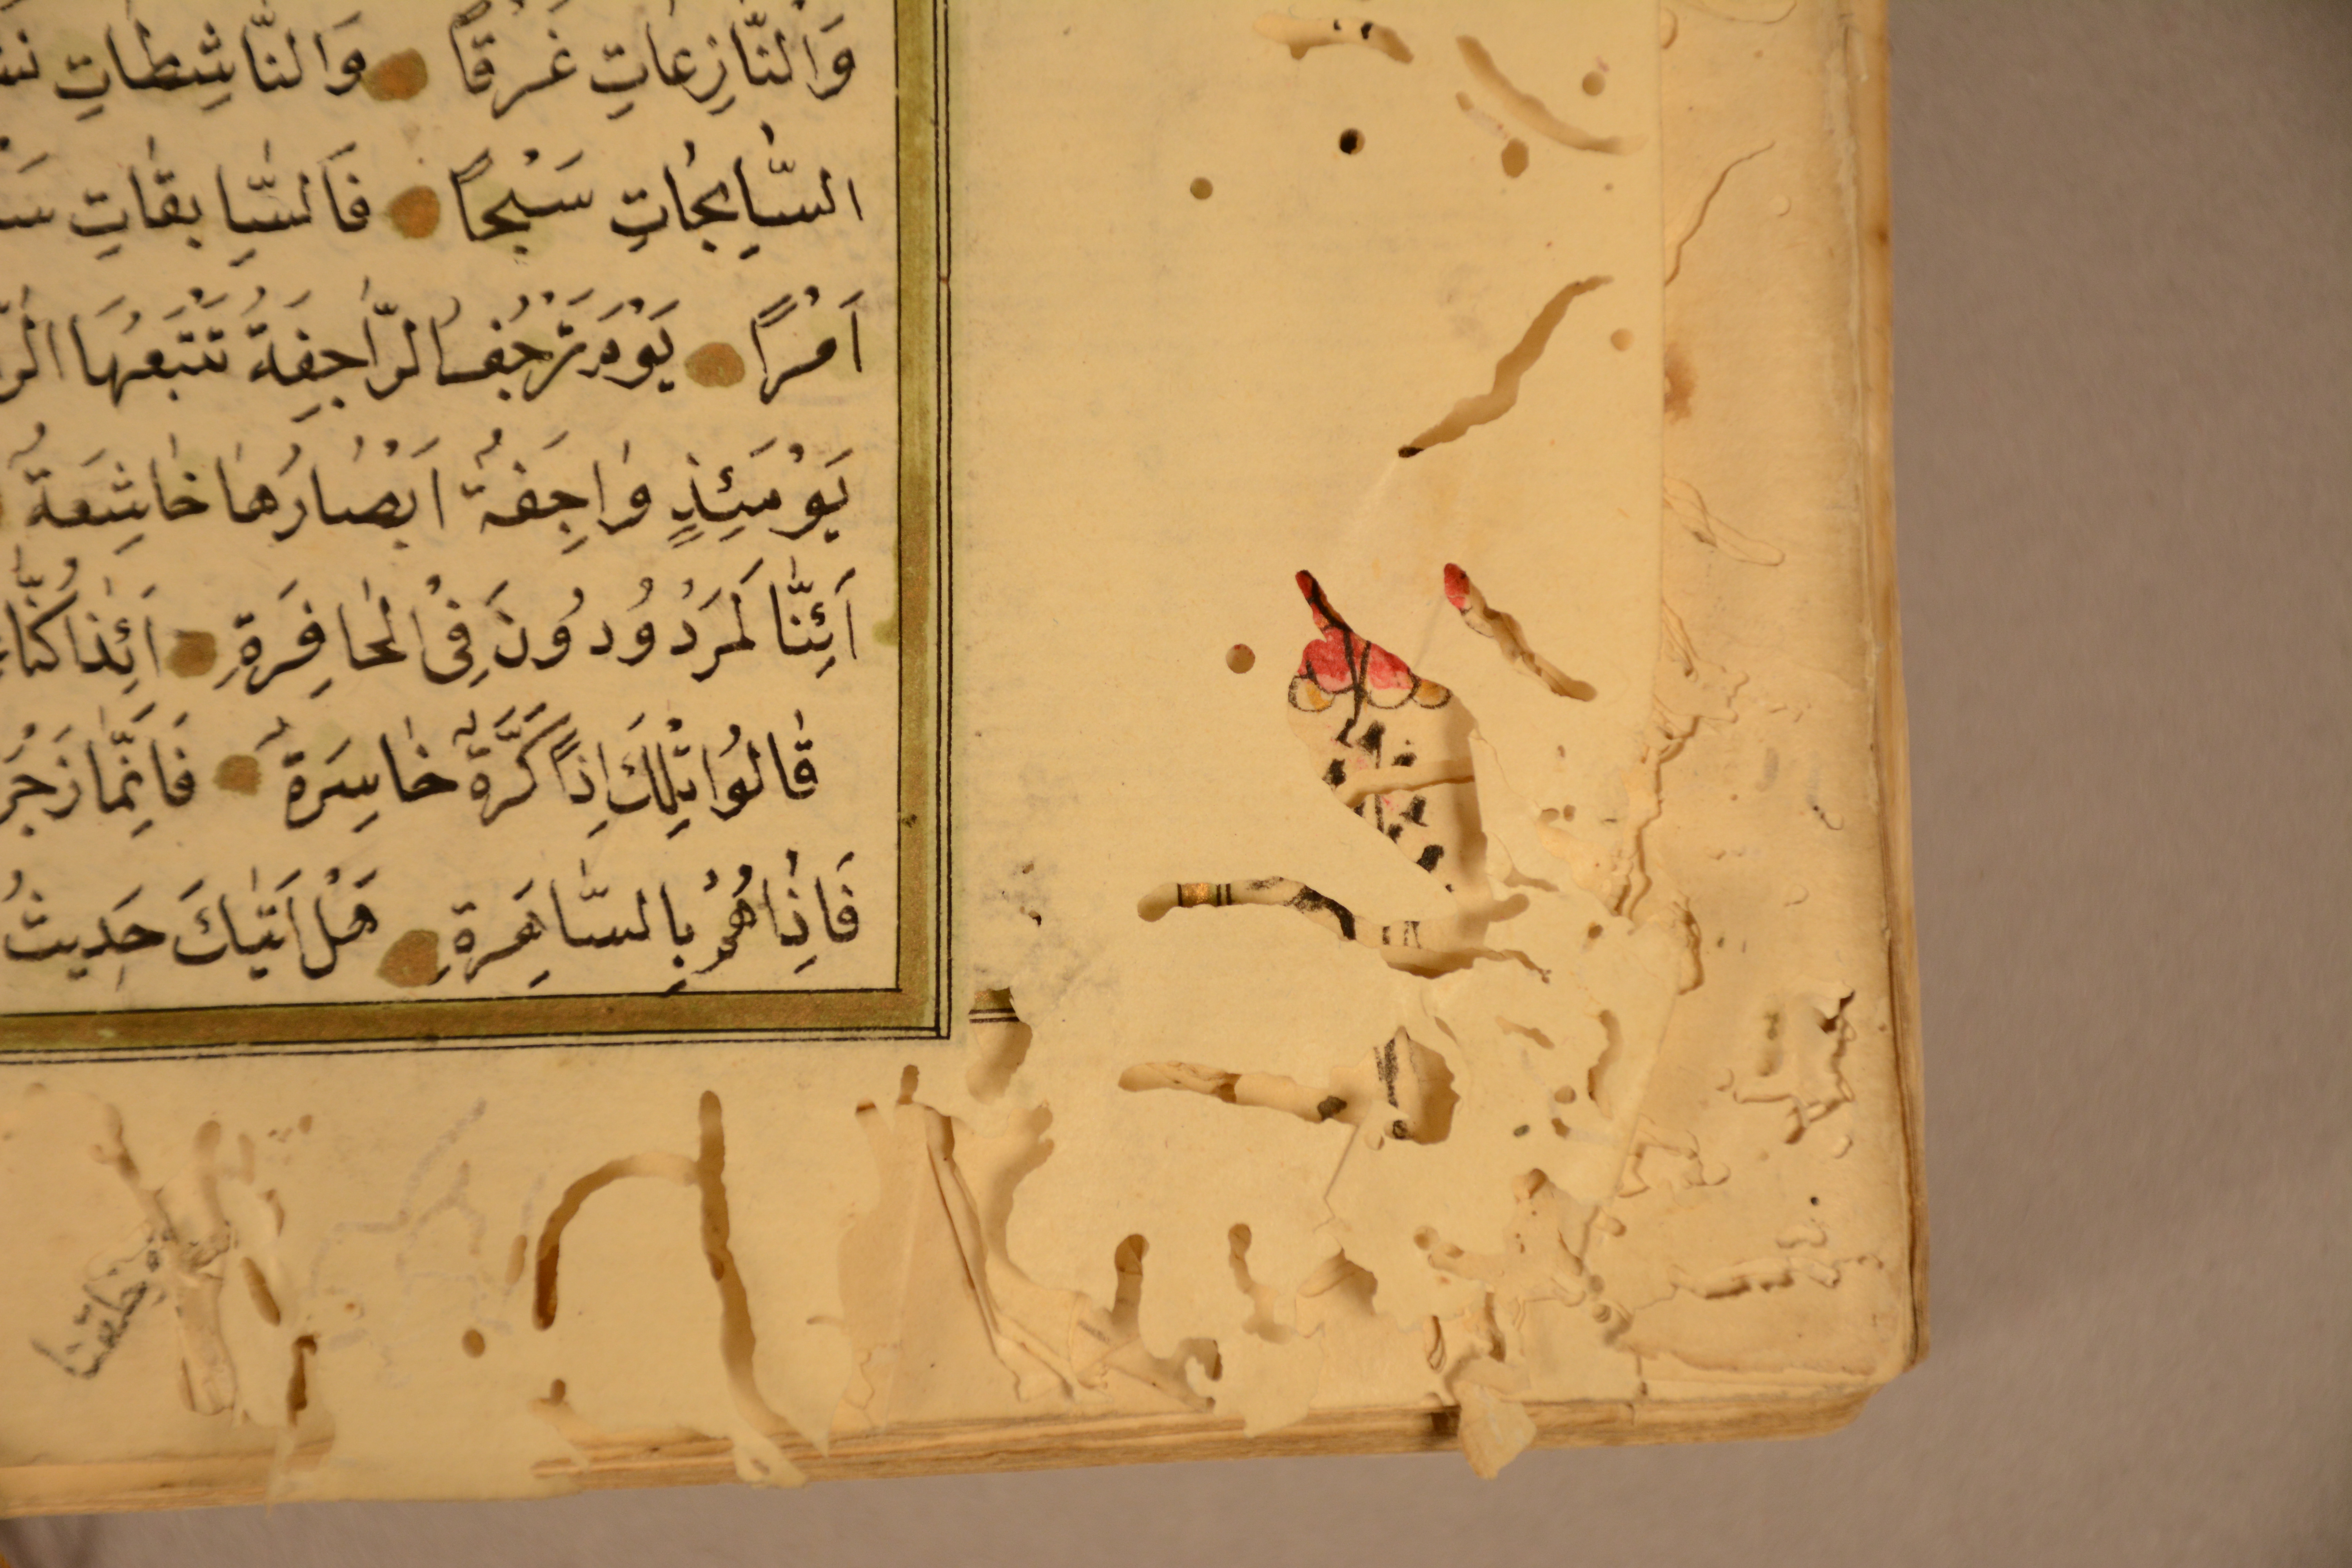 وَالنَّازِعَاتِ غَرْقًا وَالنَّاشِطَاتِ
السَّابِحَاتِ سَبْحًا فَالسَّابِقَاتِ
اَمْرًا يَوْمَ تَرْجُفُ الرَّاجِفَةُ تَتْبَعُهَا
يَوْمَئِذٍ وَاجِفَةٌ اَبْصَارُهَا خَاشِعَةٌ
اَئِنَّا لَمَرْدُودُونَ فِي الْحَافِرَةِ اَئِذَا كُنَّا
قَالُوا تِلْكَ اِذًا كَرَّةٌ خَاسِرَةٌ فَاِنَّمَا
فَاِذَا هُمْ بِالسَّاهِرَةِ هَلْ اَتٰيكَ حَدِيثُ